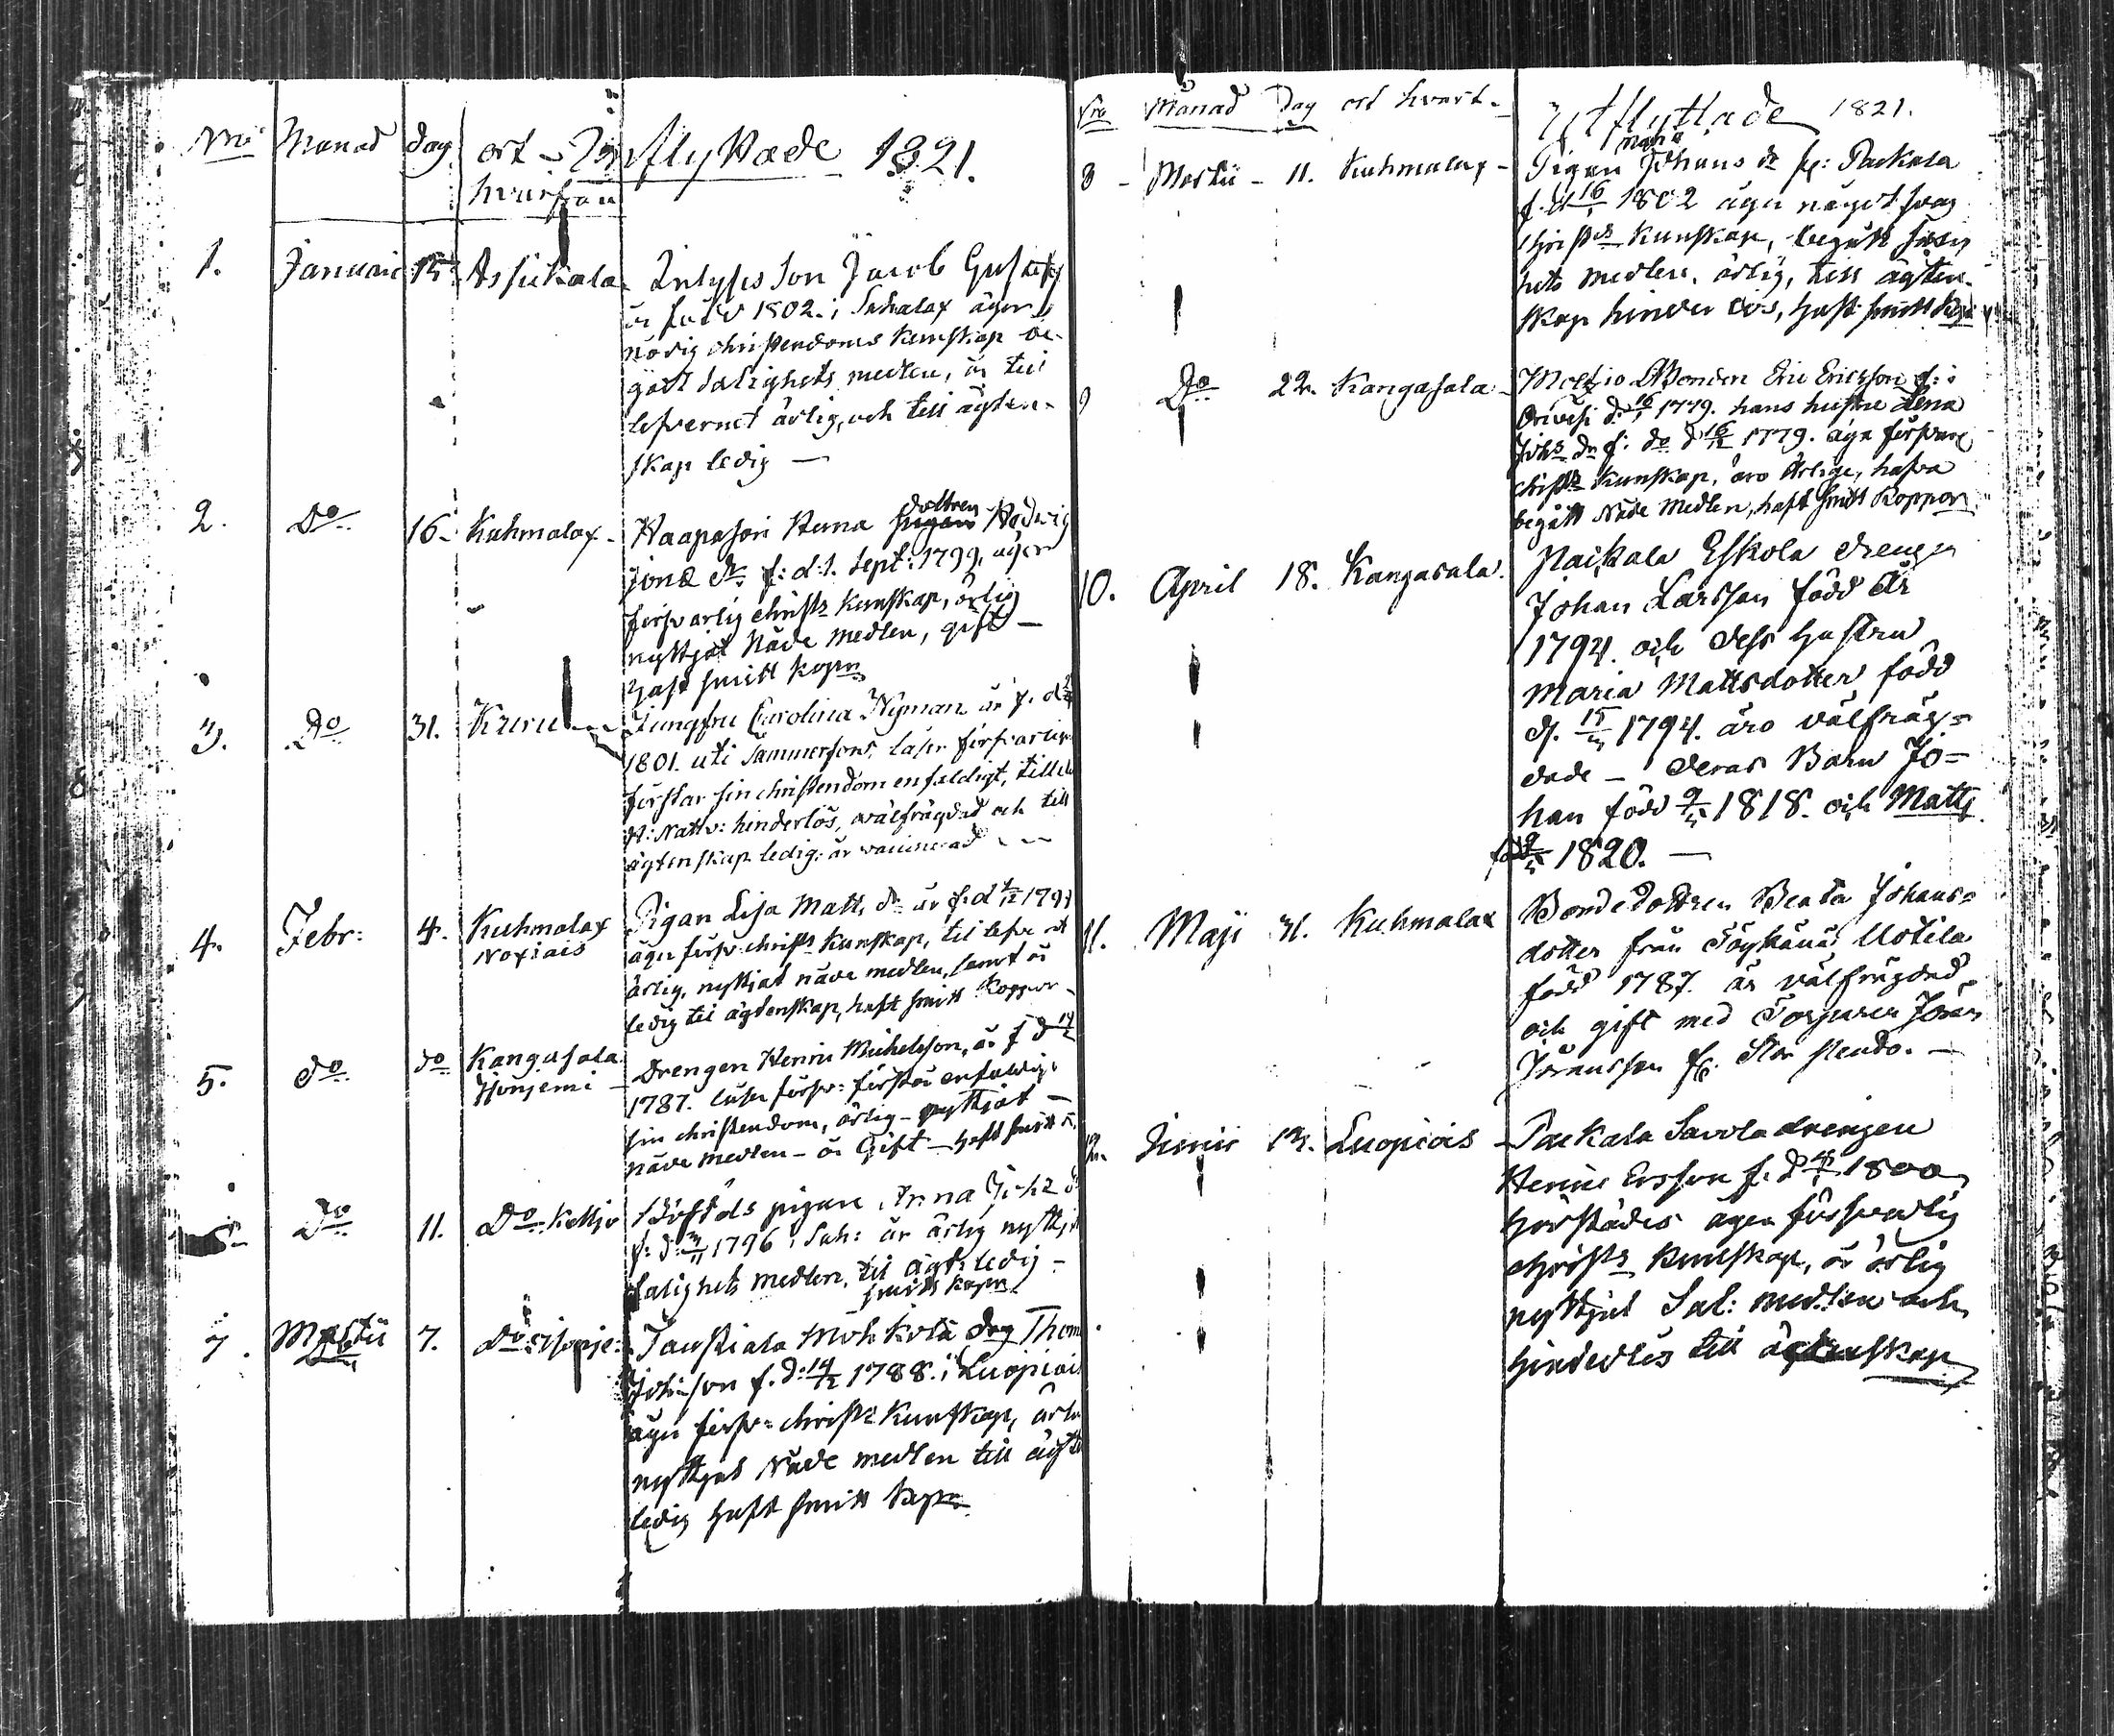 Nro Månad dag ort Inflyttade 1821.
hvarifrån
1. Januari 15 Assikala Inhyses Son Jacob Gustafs
är född 1802. i Sahalax äger
nödig christendoms kunskap be-
gått salighets medlen, är till
lefvernet ärlig, och till ägten-
skap ledig —
2. Do 16 Kuhmalax - Haapasari Huna dottren Hedvig
Jons dr f: d. 1. Sept: 1799, äger
försvarlig christs kunskap, ärlig
nyttjat Nåde medlen, gift —
haft smitt kopr
3. Do 31. Kuru Jungfru Carolina Nyman är f. d.
1801. uti Tammerfors, läser försvarlig
förstår sin christendom enfaldigt, till
H: Nattv: henderlös, välfrägdad och till
ägtenskap ledig. är vaccinerad
4. Febr: 4. Kuhmalax Pigan Lisa Matts dr är f. d
äger försv christs kunskap, til lefvernet
ärlig, nyttjat nåde medlen, samt är
ledig til ägtenskap, haft smitt koppor
5. do do Kangasala Drengen Henric Michelsson, är f d
1787. läser försv: förstår enfaldig
sin christendom, ärlig - nyttjat —
nåde medlen - är Gift - haft smitt k.
Do 11. Do pigan Anna Joh: d
f: d: 1796 i Sah: är ärlig nyttjat
salighets medlen, til ägt: ledig -
smitt kopr
7. Martii 7. do Tauskiala drg Thom
Johsson f. d: 14/12 1788. i Luopiois
äger försv: christs kunskap, ärlig
nyttjat Nåde medlen till ägt
ledig haft smitt kopr
Nro Månad Dag ort hvart - Utflyttade 1821.
8 - Martii - 11. Kuhmalax - Maria
Pigan Johans dr fr: Packala
f. d 16/1 1802 äger något svag
christs kunskap, begått salig
hets medlen, ärlig, till ägten-
skap hinder lös, haft smitt kopr
9 Do 22. Kangasala - Moltzio Bonden Eric Ericsson f: i
Orivesi d. 16/1 1779. hans hustru Lena
Johs dr f: do d 16/12 1779. äga försvarl
christs kunskap, äro ärlige, hafva
begått Nåde Medlen, haft smitt koppor
10. April 18. Kangasala. Paickala Eskola drengen
Johan Larsson född år
1794. och dess hustru
Maria Mattsdotter född
d. 1794. äro välfräg-
dade — deras Barn Jo-
han född 1818. och Matts
född 1820. —
11. Maji 31. Kuhmalax Bondedottren Beata Johans-
dotter från Töyhänä Uotila
född 1787. är välfrägdad
och gift med Torparen Jöran
Jöransson
12. Junii 13. Luopiois - Packala Savola drengen
Henric Ersson f. d 1800
härstädes äger försvarlig
christs kunskap, är ärlig
nyttjat Sal: medlen och
hinderlös till ägtenskap